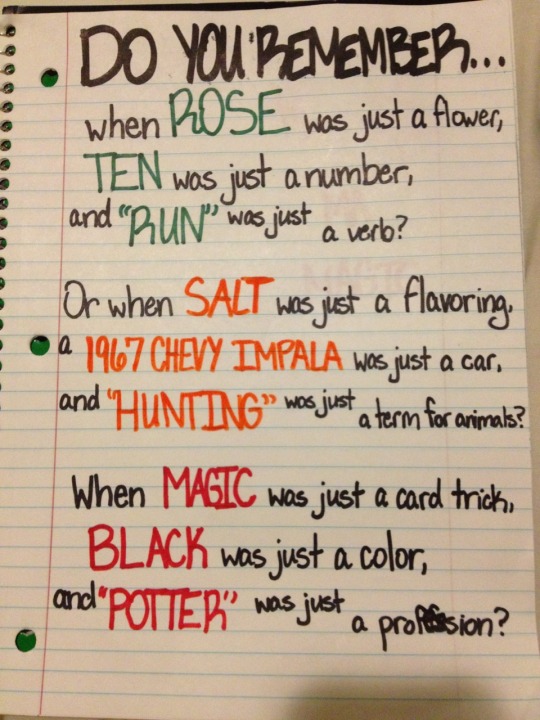 DO YOU REMEMBER...
when ROSE was just a flower,
TEN was just a number,
and "RUN" was just a verb?
Or when SALT was just a flavoring,
a 1967 CHEVY IMPALA was just a car,
and "HUNTING" was just a term for animals?
When MAGIC was just a card trick,
BLACK was just a color,
and "POTTER" was just a profession?